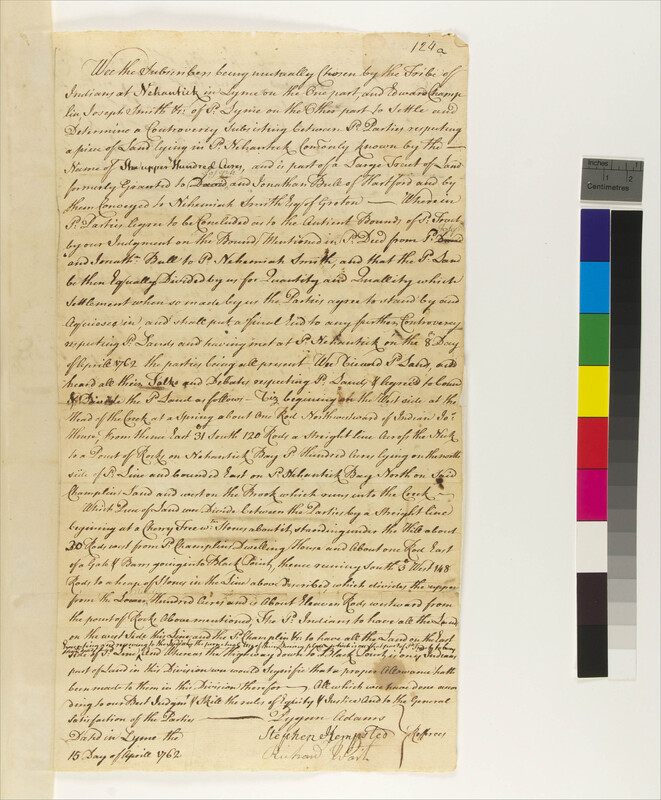 124a
Wee the Subscribers being mutually Chosen by the Tribe of
Indians at Nehantick in Lyme on the One part, and Edward Champ
lin, Joseph Smith &c: of sd. Lyme on the Other part to Settle and
Determine a Controversy Subsisting between sd. Parties respecting
a piece of Land lying in sd. Nehantick Comonly known by the
Name of The upper Hundred Acres, and is part of a Large Tract of Land
formerly Granted to David and Jonathan Bull of Hartford and by
them Conveyed to Nehemiah Smith Esqr of Groton — Wherein
sd. Parties Agree to be Concluded as to the Antient Bounds of sd. Tract
by our Judgment on the Bounds Mentioned in sd. Deed from sd. David
and Jonathn. Bull to sd. Nehemiah Smith, and that the sd. Land
be then Equally Divided by us for Quantity and Quallity which
Settlement when so made by us the Parties agree to stand by and
Aquiesce in, and shall put a final End to any further Controversy
respecting sd. Lands and having met at sd. Nehantick on the 8th Day
of Aprill 1762 the parties being all present We Viewed sd Land, and
heard all their Talks and Debates respecting sd. Land, & Agreed to Bound
& Divide the sd Land as follows — Viz begining on the West side at the
Head of the Creek at a Spring about One Rod Northwestward of Indian Jos.
House, From thence East 31 South 120 Rods a Streight line Across the Neck
to a Point of Rocks on Nehantick Bay sd Hundred Acres lying on the north
side of sd. Line and bounded East on sd. Nehantick Bay North on Said
Champlins Land and west on the Brook which runs into the Creek
Which Piece of Land we Divide between the Parties by a Streight line
begining at a Cherry Tree wth. Stones about it, standing under the Hill about
30 Rods west from sd Champlins Dwelling House and About one Rod East
of a Gate & Bars going into Black Point, thence running South 3d West 148
Rods to a heap of Stones in the Line above described which divides the upper
from the Lower Hundred Acres and is About Eleaven Rods westward from
the point of Rocks Above mentioned, The sd. Indians to have all the Land
on the west Side this Line, and the sd. Champlin &c to have all the Land on the East
side of sd. Line, And Whereas the Highway down to Black Point is only Indian
part of Land in this Division we would Signifie that a proper Allowance hath
been made to them in this Division therefor — All which we have done accor
ding to our Best Judgmt & Skill the rules of Equity & Justice And to the General
satisfaction of the Parties
Pygan Adams
Dated in Lyme the
Stephen Hempsted
Refferees
15 Day of Aprill 1762
Richard Wait
Inches
1 2
Centimetres